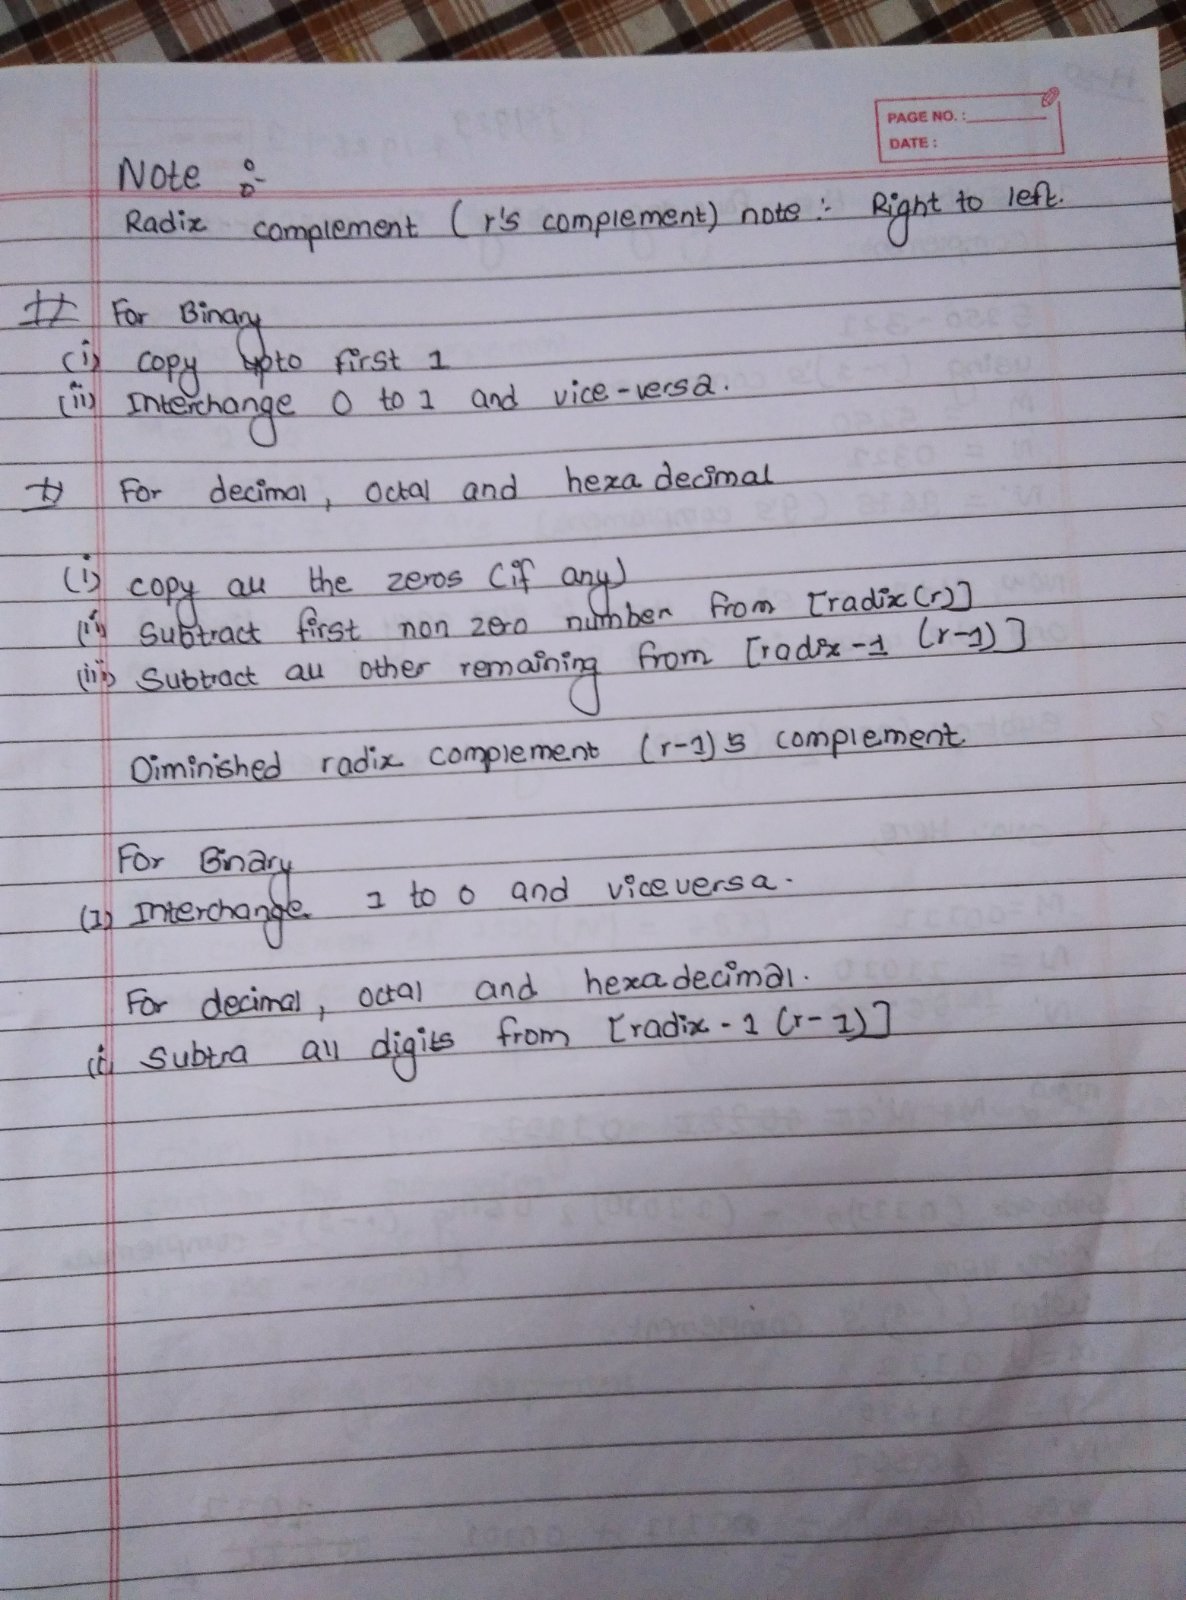 PAGE NO. :
DATE :
Note :-
Radix complement (r's complement) note :- Right to left.
# For Binary
(i) copy upto first 1
(ii) Interchange 0 to 1 and vice-versa.
# For decimal, octal and hexa decimal
(i) copy all the zeros (if any)
(ii) Subtract first non zero number from [radix(r)]
(iii) Subtract all other remaining from [radix-1 (r-1)]
Diminished radix complement (r-1)'s complement
For Binary
(I) Interchange 1 to 0 and viceversa.
For decimal, octal and hexadecimal.
(i) Subtra all digits from [radix-1 (r-1)]